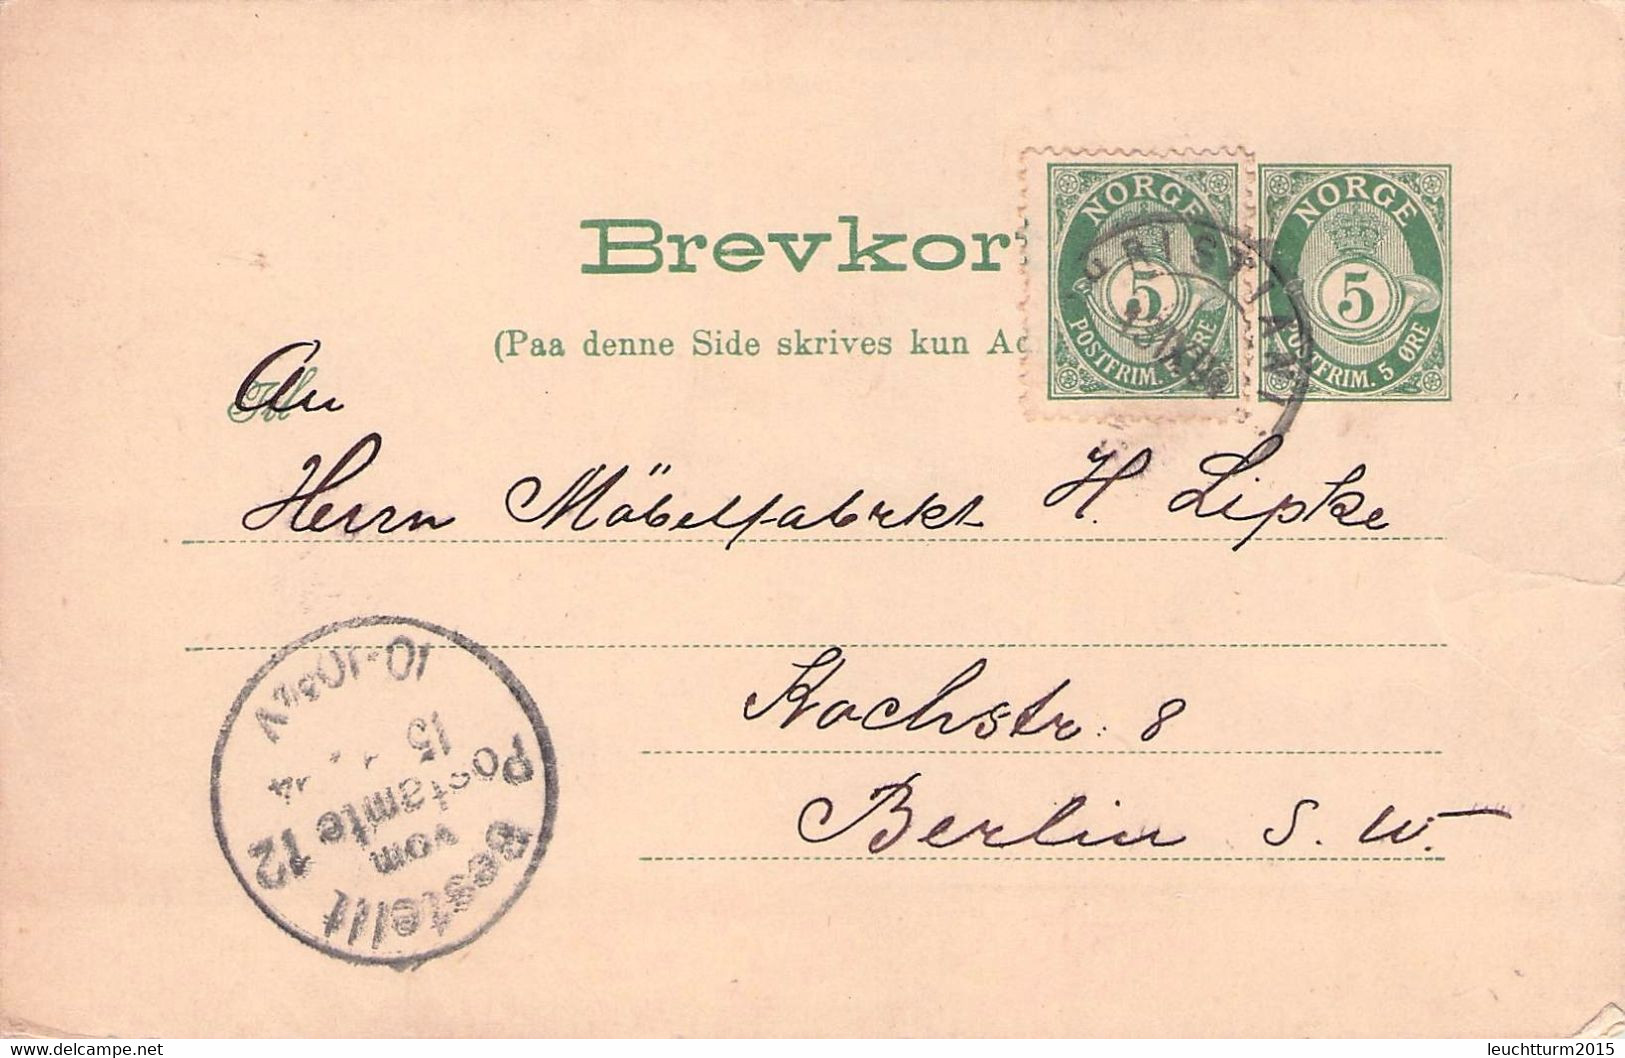 Brevkor
(Paa denne Side skrives kun Ad
NORGE
5
POSTFRIM. 5 ØRE
NORGE
5
POSTFRIM. 5 ØRE
Til
An
Herrn Möbelfabrkt H. Lipke
Kochstr. 8
Berlin S. W.
Bestellt
vom
Postamte 12
15
10-10¾V
leuchtturm2015